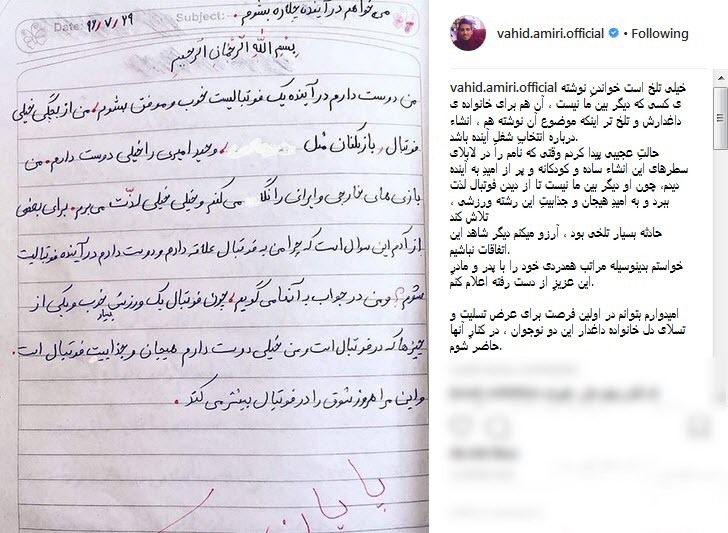 می خواهم در آینده چکاره بشوم.
Date: ۹۶/۷/۲۹ Subject:
بِسمِ اللهِ الرَّحمانِ الرَّحیمِ
من دوست دارم در آینده یک فوتبالیست خوب و موفق بشوم، من از بچگی خیلی
فوتبال و بازیکنان مثل وحید امیری را خیلی دوست دارم. من
بازی های خارجی و ایرانی را نگا می کنم و خیلی خیلی لذّت می برم. برای بعضی
از آدم این سوال است که چرا من به فوتبال علاقه دارم و دوست دارم در آینده فوتبالیست
بشوم؟ و من در جواب به آنها می گویم، چون فوتبال یک ورزش بسیار خوب و یکی از
چیزها که در فوتبال است و من خیلی دوست دارم هیجان و جذابیت فوتبال است.
و این مرا هر روز شوق را در فوتبال بیشتر می کند.
پایان
vahid.amiri.official • Following
vahid.amiri.official خیلی تلخ است خواندنِ نوشته
ی کسی که دیگر بین ما نیست ، آن هم برای خانواده ی
داغدارش و تلخ تر اینکه موضوع آن نوشته هم ، انشاء
درباره انتخابِ شغلِ آینده باشد.
حالتِ عجیبی پیدا کردم وقتی که نامم را در لابلای
سطرهای این انشاء ساده و کودکانه و پر از امیدِ به آینده
دیدم، چون او دیگر بین ما نیست تا از دیدن فوتبال لذت
ببرد و به امیدِ هیجان و جذابیتِ این رشته ورزشی ،
تلاش کند
حادثه بسیار تلخی بود ، آرزو میکنم دیگر شاهد این
اتفاقات نباشیم.
خواستم بدینوسیله مراتب همدردی خود را با پدر و مادرِ
این عزیزِ از دست رفته اعلام کنم
امیدوارم بتوانم در اولین فرصت برای عرض تسلیت و
تسلای دل خانواده داغدار این دو نوجوان ، در کنارِ آنها
حاضر شوم.